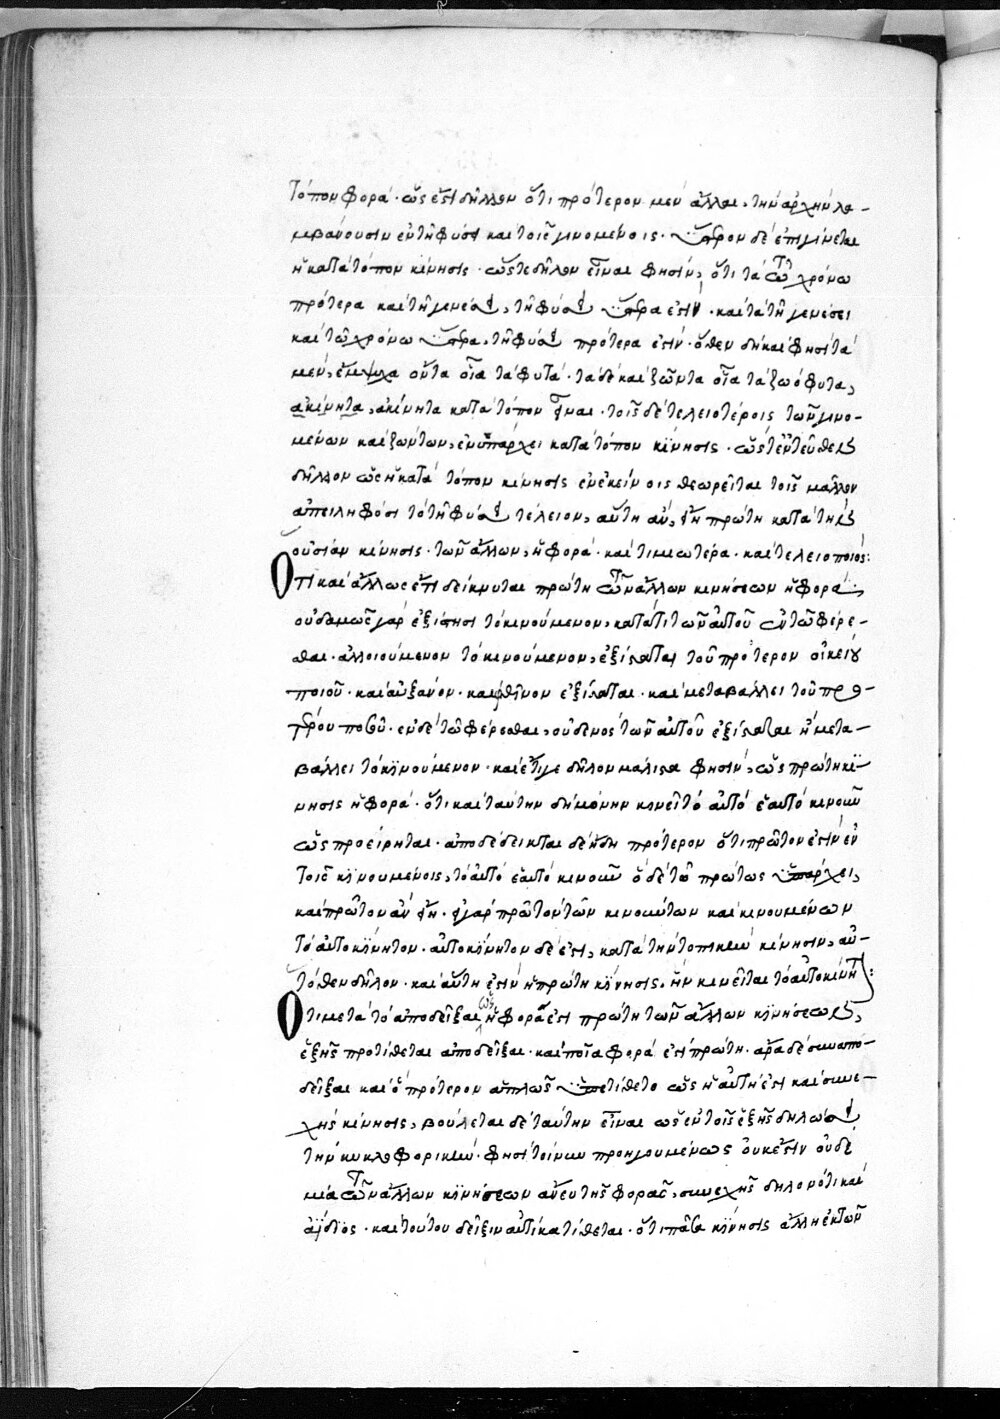 τόπον φορά· ὥς ἐστι δῆλον ὅτι πρότερον μὲν ἄλλαι, τὴν ἀρχὴν λα-
μβάνουσιν ἐν τῇ φύσει καὶ τοῖς γινομένοις· ὕστερον δὲ ἐπιγίνεται
ἡ κατὰ τόπον κίνησις· ὥστε δῆλον εἶναι φησὶν, ὅτι τὰ τῶ χρόνω
πρότερα καὶ τῇ γενέσει, τῇ φύσει ὕστερα ἐστίν· καὶ τὰ τῇ γενέσει
καὶ τῶ χρόνω ὕστερα, τῇ φύσει πρότερα ἐστίν· ὅθεν δὴ καὶ φησὶ τὰ
μὲν, ἔμψυχα ὄντα οἷα τὰ φυτά· τὰ δὲ καὶ ζῶντα οἷα τὰ ζωόφυτα,
ἀκίνητα, ἀκίνητα κατὰ τόπον εἶναι· τοῖς δὲ τελειοτέροις τῶν γινο-
μένων καὶ ζώντων, ἐνυπάρχει κατὰ τόπον κίνησις· ὥστ' ἐντεῦθεν
δῆλον ὡς ἡ κατὰ τόπον κίνησις ἐν ἐκείνοις θεωρεῖται τοῖς μᾶλλον
ἀπειληφόσι τὸ τῇ φύσει τέλειον, αὕτη ἂν, εἴη πρώτη κατὰ τὴν
οὐσίαν κίνησις· τῶν ἄλλων, ἡ φορά· καὶ τιμιωτέρα· καὶ τελειοποιός:
Ὅτι καὶ ἄλλως ἔτι δείκνυται πρώτη τῶν ἄλλων κινήσεων ἡ φορά,
οὐδαμῶς γὰρ ἐξίστησι τὸ κινούμενον, κατά τι τῶν αὐτοῦ ἐν τῶ φέρε-
σθαι· ἀλλοιούμενον τὸ κινούμενον, ἐξίσταται τοῦ πρότερον οἰκείου
ποιοῦ· καὶ αὐξανόν· καὶ φθῖνον ἐξίσταται· καὶ μεταβάλλει τοῦ προ-
τέρου ποσοῦ· ἐν δὲ τῶ φέρεσθαι, οὐδενὸς τῶν αὐτοῦ ἐξίσταται ἢ μετα-
βάλλει τὸ κινούμενον· καὶ ἔτι γε δῆλον μάλιστα φησὶν, ὡς πρώτη κί-
νησις ἡ φορά· ὅτι καὶ ταύτην δὴ μόνην κινεῖ τὸ αὐτὸ ἑαυτὸ κινοῦν
ὡς προείρηται· ἀποδέδεικται δὲ ἤδη πρότερον ὅτι πρῶτον ἐστὶν ἐν
τοῖς κινουμένοις, τὸ αὐτὸ ἑαυτὸ κινοῦν ὃ δὲ τῶ πρώτως ὑπάρχει,
καὶ πρῶτον ἂν εἴη· εἰ γὰρ πρῶτον τῶν κινούντων καὶ κινουμένων
τὸ αὐτοκίνητον· αὐτοκίνητον δέ ἐστι, κατὰ τὴν τοπικὴν κίνησιν, αὐ-
τόθεν δῆλον· καὶ αὕτη ἐστὶν ἡ πρώτη κίνησις, ἣν κινεῖται τὸ αὐτοκίνητον:
Ὅτι μετὰ τὸ ἀποδεῖξαι ὡς ἡ φορά ἐστι πρώτη τῶν ἄλλων κινήσεων,
ἑξῆς προτίθεται ἀποδεῖξαι· καὶ ποία φορά ἐστι πρώτη· ἅμα δὲ συναπο-
δεῖξαι καὶ ὃ πρότερον ἁπλῶς ὑπετίθετο ὡς ἡ αὐτή ἐστι καὶ συνε-
χὴς κίνησις, βούλεται δὲ ταύτην εἶναι ὡς ἐν τοῖς ἑξῆς δηλώσει
τὴν κυκλοφορικήν· φησὶ τοίνυν προηγουμένως οὐκ ἔστιν οὐδὲ
μία τῶν ἄλλων κινήσεων ἄνευ τῆς φορᾶς, συνεχὴς δηλονότι καὶ
ἀΐδιος· καὶ τούτου δεῖξιν αὐτίκα τίθεται· ὅτι πᾶσα κίνησις ἄλλη ἐκ τῶν